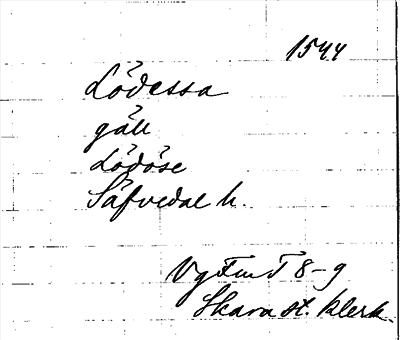 1544
Lödessa
gäll
Lödöse
Säfvedal h.
VgFmT 8-9
Skara st. klerk.